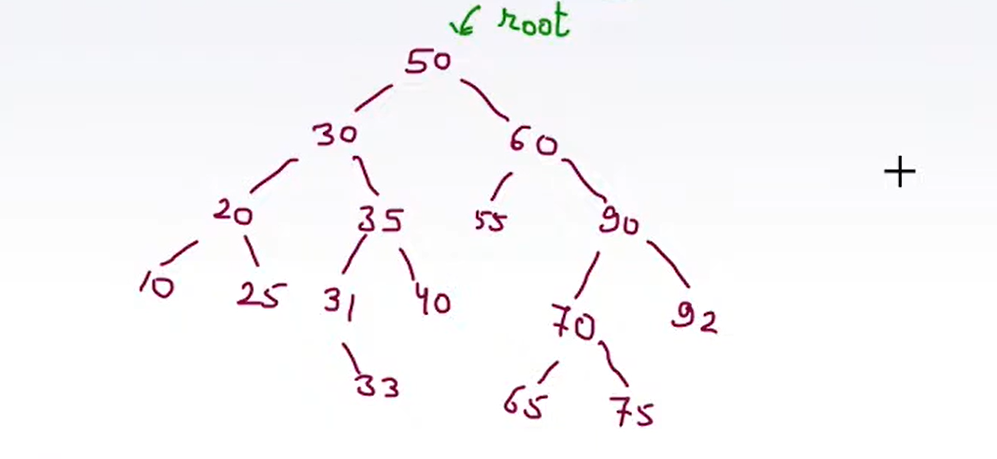 root
50
30 60
20 35 55 90
10 25 31 40 70 92
33 65 75